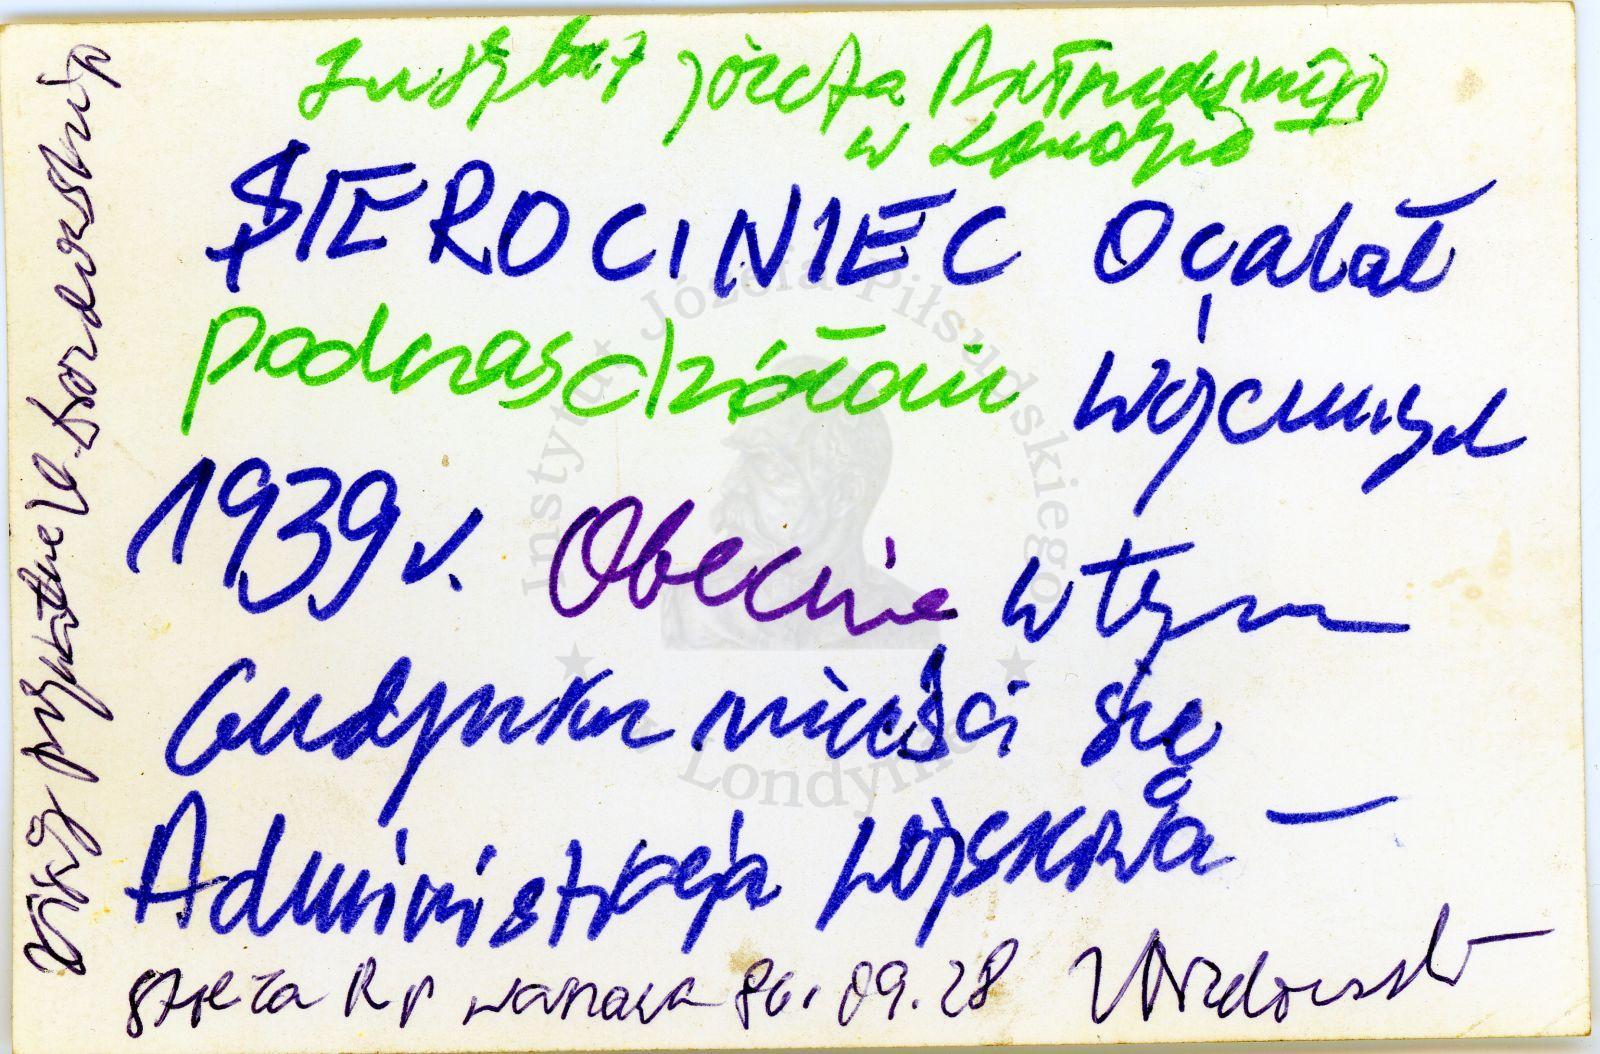 Instytut Józefa Piłsudskiego
w Londynie
SIEROCINIEC Ocalał
podczas działań wojennych
1939 r. Obecnie w tym
budynku mieści się
Administracja wojskowa
RP Warszawa 86.09.28
Instytut Józefa Piłsudskiego
w Londynie